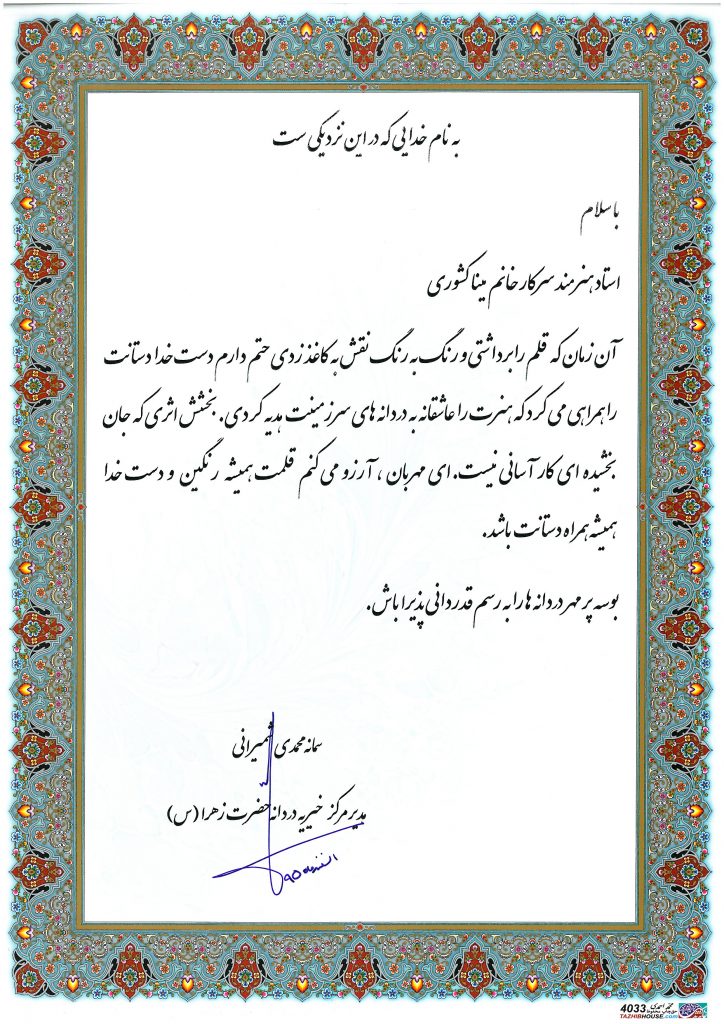 به نام خدایی که در این نزدیکی ست
با سلام
استاد هنرمند سرکار خانم مینا کشوری
آن زمان که قلم را برداشتی و رنگ به رنگ نقش به کاغذ زدی حتم دارم دست خدا دستانت
را همراهی می کرد که هنرت را عاشقانه به دردانه های سرزمینت هدیه کردی. بخشش اثری که جان
بخشیده ای کار آسانی نیست. ای مهربان ، آرزو می کنم قلمت همیشه رنگین و دست خدا
همیشه همراه دستانت باشد.
بوسه پر مهر دردانه ها را به رسم قدردانی پذیرا باش.
سمانه محمدی شمیرانی
مدیر مرکز خیریه دردانه حضرت زهرا (س)
4033
TAZHIBHOUSE.com